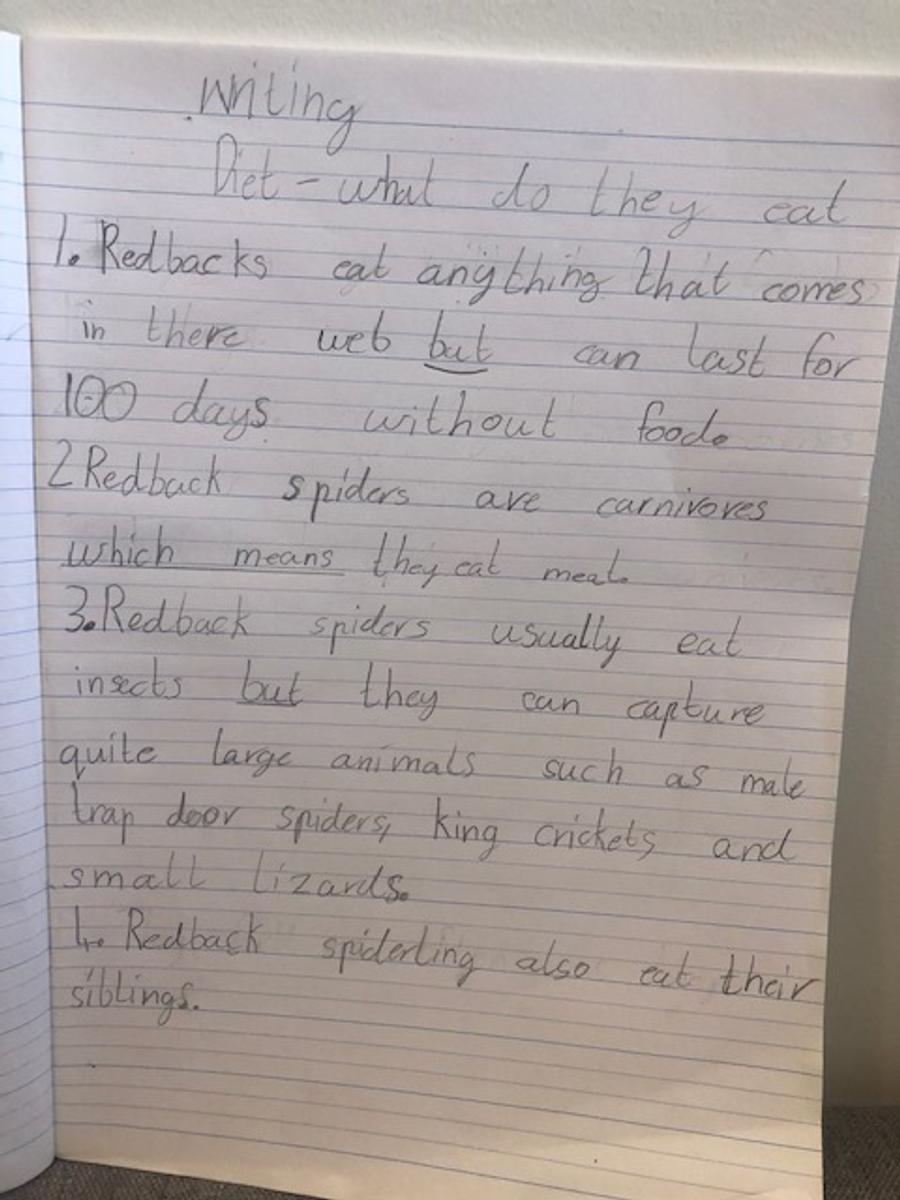 Writing
Diet - what do they eat
1. Redbacks eat anything that comes
in there web but can last for
100 days without food.
2 Redback spiders are carnivores
which means they eat meat.
3. Redback spiders usually eat
insects but they can capture
quite large animals such as male
trap door spiders, king crickets and
small lizards.
4. Redback spiderling also eat their
siblings.